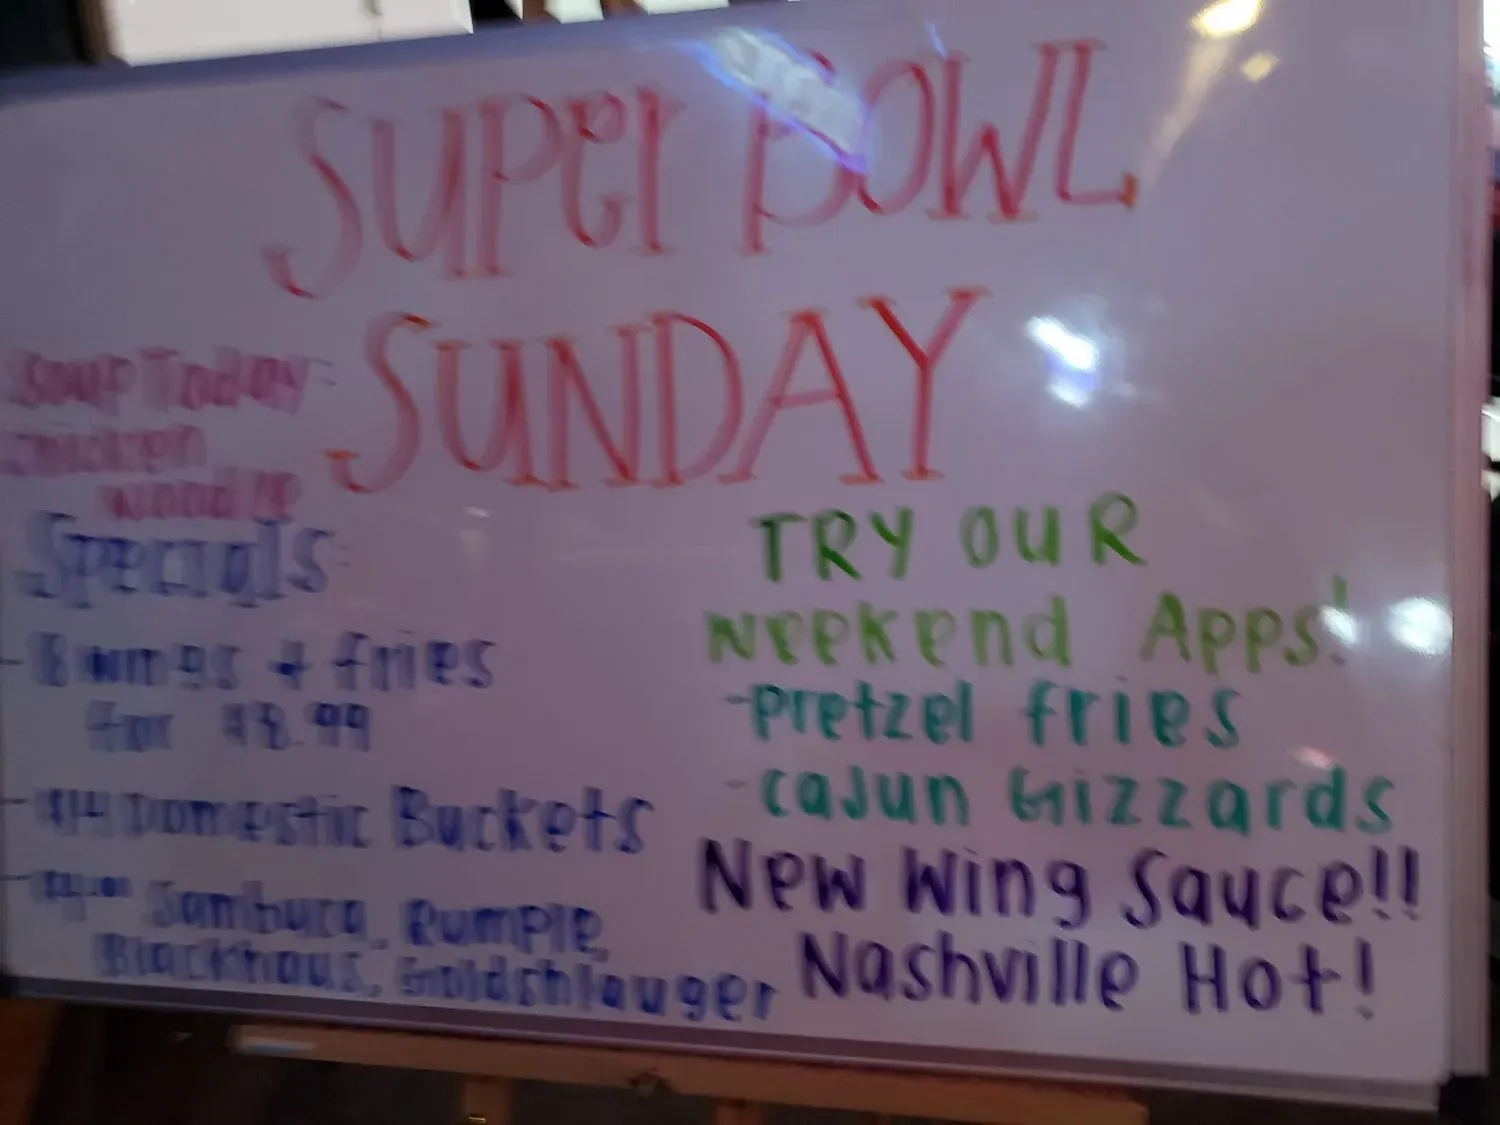 SUPer BOWL
SUNDAY
Soup Today:
chicken
noodle
Specials:
- 8 wings & fries
for $8.99
- $14 Domestic Buckets
- $4.00 Sambuca, Rumple,
Blackhaus, Goldshlauger
TRY OUR
weekend Apps!
- Pretzel fries
- cajun Gizzards
New Wing Sauce!!
Nashville Hot!